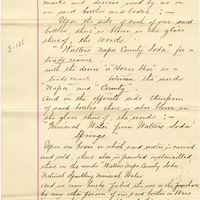 marks and devices used by us on
our said bottles and boxes: –
Upon the side of each of our said
bottles, there is blown in the glass
thereof the words
"Walters Napa County Soda" for a
trade name,
with the device "a Horse Shoe" as a
trade mark between the words
"Napa" and "County".
And on the opposite side thereof
of said bottles there is also blown in
the glass thereof the words: –
"Mineral Water from Walters Soda
Springs."
Upon our boxes in which said water is carried
and sold, there also is painted
thereon on the inside "Walters Napa County Soda.
Natural Sparkling Mineral Water."
And we now hereby forbid the use or the purchase
by any other person of our said bottles or boxes